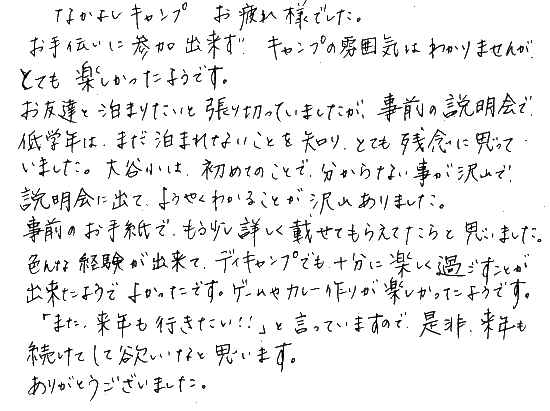 なかよしキャンプ　お疲れ様でした。
お手伝いに参加出来ず、キャンプの雰囲気はわかりませんが、
とても楽しかったようです。
お友達と泊まりたいと張り切っていましたが、事前の説明会で、
低学年は、まだ泊まれないことを知り、とても残念に思って
いました。大谷小は、初めてのことで、分からない事が沢山で、
説明会に出て、ようやくわかることが沢山ありました。
事前のお手紙で、もう少し詳しく載せてもらえてたらと思いました。
色んな経験が出来て、デイキャンプでも十分に楽しく過ごすことが
出来たようで よかったです。ゲームやカレー作りが楽しかったようです。
「また、来年も行きたい!!」と言っていますので、是非、来年も
続けてして欲しいなと思います。
ありがとうございました。